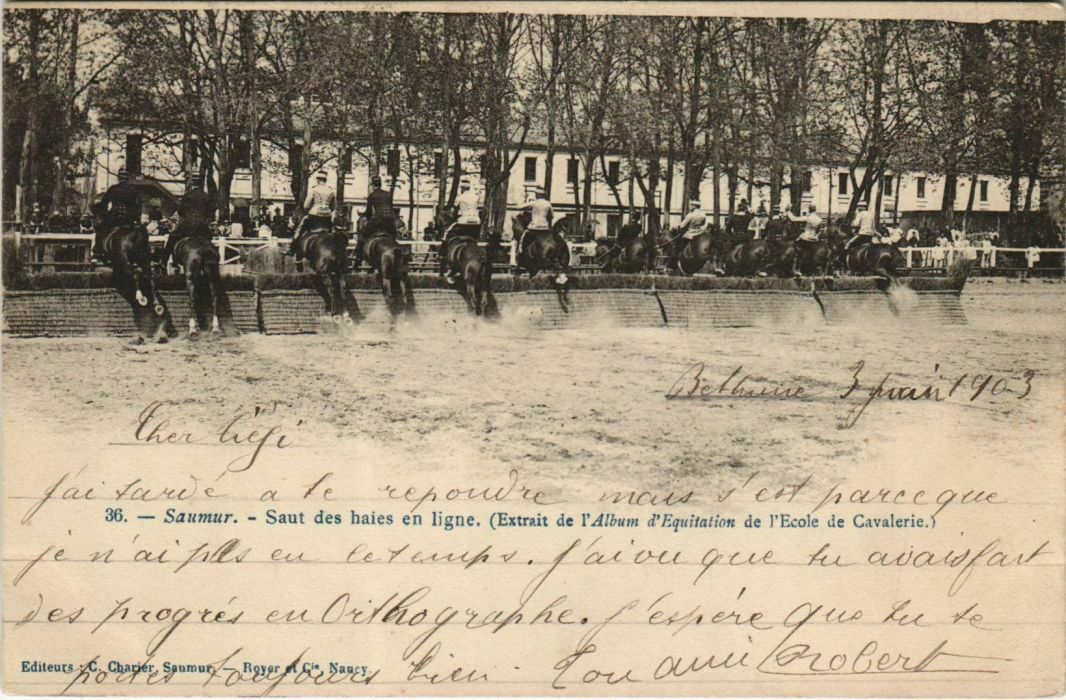 Bethune 3 juin 1903
Cher Giési
J'ai tardé a te repondre mais s'est parceque
36. — Saumur. - Saut des haies en ligne. (Extrait de l'Album d'Equitation de l'Ecole de Cavalerie.)
je n'ai pas eu le temps. J'ai vu que tu avais fart
des progrés en Orthographe. J'espére que tu te
Editeurs : C. Charier, Saumur. — Royer et Cie, Nancy.
portes toujours bien Ton ami Robert